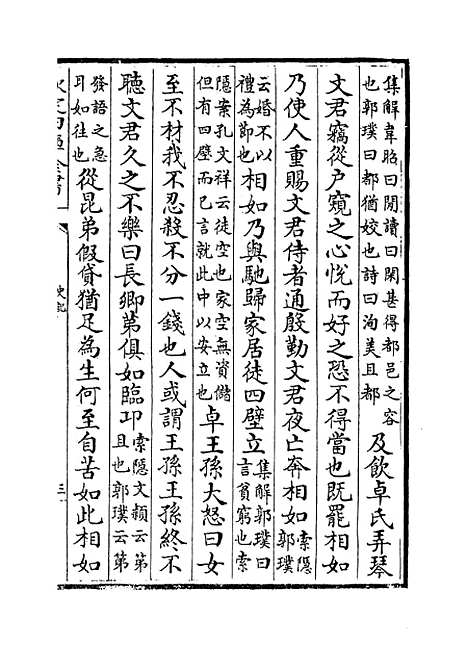 集解韋昭曰閒讀曰閑甚得都邑之容
也郭璞曰都猶姣也詩曰洵美且都
及飲卓氏弄琴
文君竊從户窺之心悦而好之恐不得當也既罷相如
乃使人重賜文君侍者通殷勤文君夜亡奔相如
索隱
郭璞
云婚不以
禮為節也
相如乃與馳歸家居徒四壁立
集解郭璞曰
言貧窮也索
隱案孔文祥云徒空也家空無資儲
但有四壁而已言就此中以安立也
卓王孫大怒曰女
至不材我不忍殺不分一錢也人或謂王孫王孫終不
聽文君久之不樂曰長卿第俱如臨卭
索隱文穎云第
且也郭璞云第
發語之急
耳如往也
從昆弟假貸猶足為生何至自苦如此相如